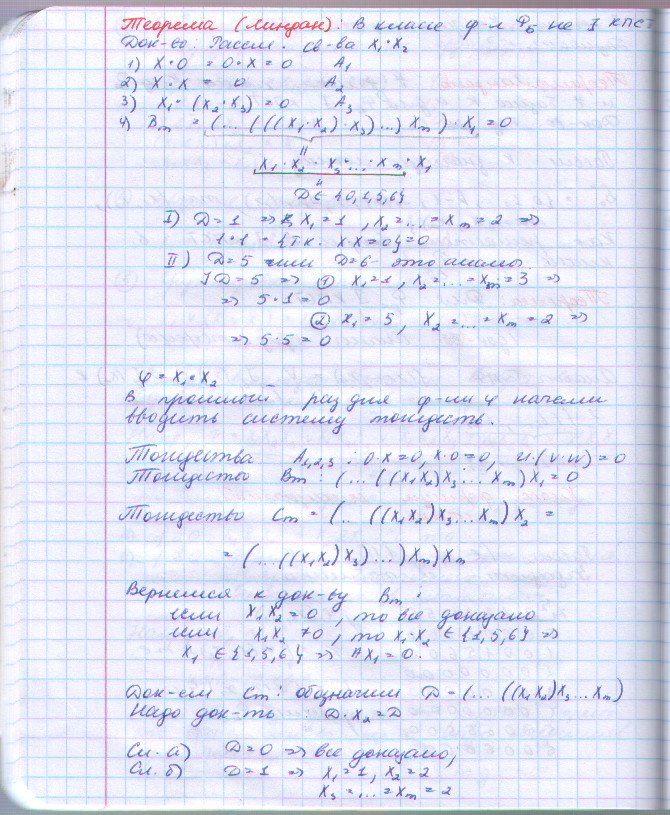 Теорема (Линдан): В классе ф-л Ф₅ не ∃ КПСТ
Док-во: Рассм. св-ва x₁·x₂
1) x·0 = 0·x = 0   A₁
2) x·x = 0   A₂
3) x₁·(x₂·x₃) = 0   A₃
4) Bm = (...(((x₁·x₂)·x₃)...) xm)·x₁ = 0
"
x₁·x₂·x₃·...·xm·x₁
"
D ∈ {0,1,5,6}
I) D=1 => x₁=1, x₂=...=xm=2 =>
1·1 = {т.к. x·x=0} = 0
II) D=5 или D=6 - это
D=5 => ① x₁=1, x₂=...=xm=3 =>
=> 5·1=0
② x₁=5, x₂=...=xm=2 =>
=> 5·5=0
φ = x₁·x₂
В прошлый раз для ф-ии φ начали
вводить систему тождеств.
Тождества A₁,₂,₃: 0·x=0, x·0=0, u·(v·w)=0
Тождество Bm: (...((x₁x₂)x₃...xm)x₁=0
Тождество Cm = (..((x₁x₂)x₃...xm)x₂ =
= (...((x₁x₂)x₃)...)xm)xm
Вернемся к док-ву Bm:
если x₁x₂=0, то все доказано
если x₁x₂≠0, то x₁·x₂ ∈{1,5,6} =>
x₁ ∈{1,5,6} => Ax₁=0.
Док-ем Cm: обозначим D=(...((x₁x₂)x₃...xm)
Надо док-ть: D·x₂=D
Сл. а) D=0 => все доказано;
Сл. б) D=1 => x₁=1, x₂=2
x₃=...=xm=2